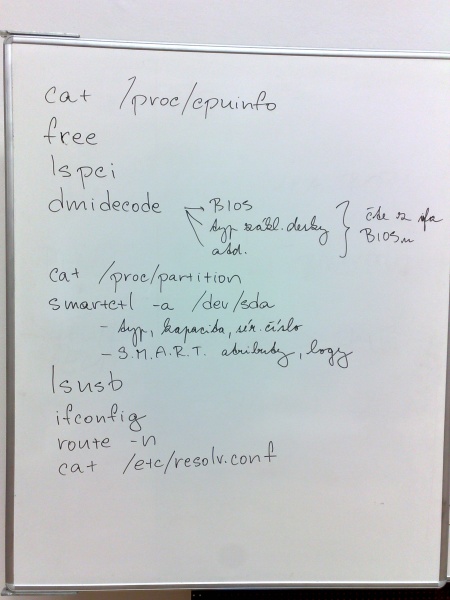 cat /proc/cpuinfo
free
lspci
dmidecode
BIOS
typ zákl. desky
atd.
čte z
BIOSu
cat /proc/partition
smartctl -a /dev/sda
- typ, kapacita, sér. číslo
- S.M.A.R.T. atributy, logy
lsusb
ifconfig
route -n
cat /etc/resolv.conf